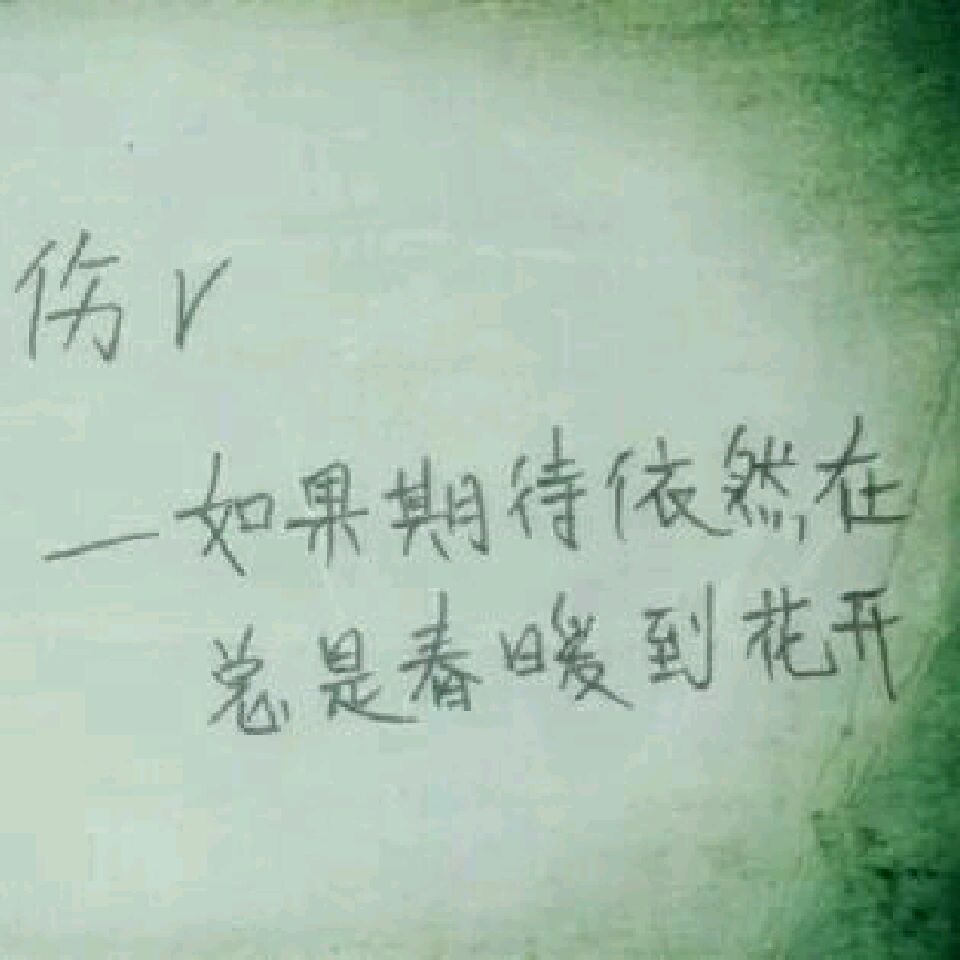 伤 V
—如果期待依然在
总是春暖到花开